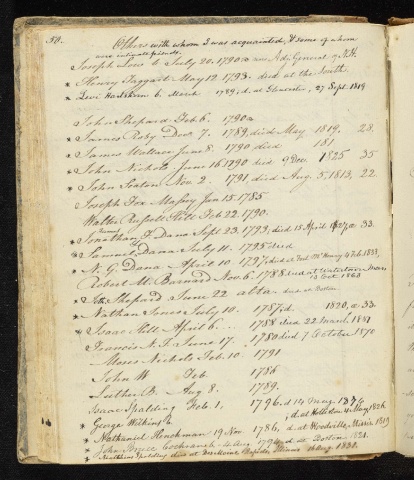 52. Others with whom I was acquainted, & some of whom
were intimate friends.
Joseph Low b. July 20. 1790 was Adj. General of N.H.
* Henry Taggart May 12. 1793. died at the South
* Levi Hartshorn b. March 1789; d. at Gloucester, 27 Sept. 1819
John Shepard Feb 6. 1790
* James Roby Dec 7. 1789, died May 1819. 28.
* James Wallace June 8. 1790 died 181
* John Nichols June 16 1790 died 9 Dec. 1825 35
* John Seaton Nov 2. 1791, died Aug. 5, 1813, 22
Joseph Fox Jan 15. 1785
Walter Russell Hill Feb 22. 1790.
* Jonathan Dana Sept 23. 1793, died 15 April 1827, a 33.
* Samuel Dana July 11. 1795 died
* N. G. Dana April 10. 1797, died at Fort McHenry 4 Feb. 1833,
Robert M. Barnard Nov. 6. 1788 died at Watertown, Mass.
12 Oct. 1863
* Shepard June 22
* Nathan Jones July 10. 1787, d. 1820, a. 33.
* Isaac Hill April 6. 1788 died 22 March, 1851
* Francis N. F. June 17. 1780 died 7 October 1870
Moses Nichols Feb. 10 1791
John W Feb. 1786
Luther B. Aug 8. 1789.
Isaac Spalding Feb. 1, 1796. d 14 May 1876
* George Wilkins b. ; d. at Holliston 4 May, 1826
* Nathaniel Henchman 19 Nov. 1786, d. at Woodville, Missi. 1819
* John Bruce Cochran b. 4 Aug d. at Boston 1821.
* Spalding died at Des Moines Rapids, Illinois Aug. 1831.